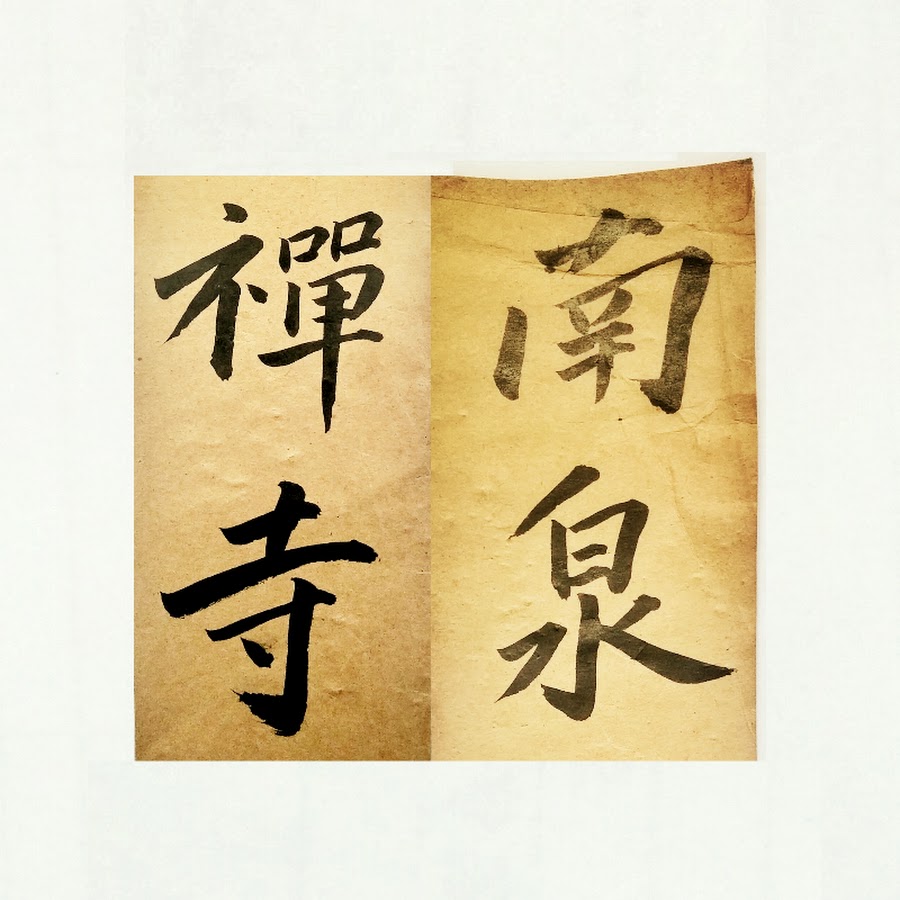 南泉
禪寺